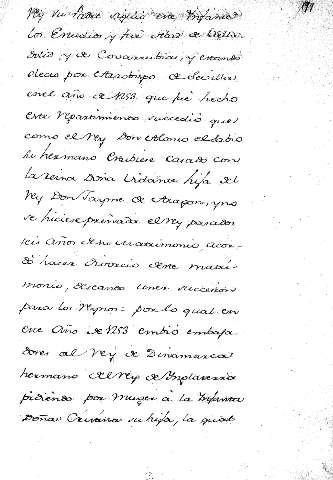 Rey su Padre siguió este Infante
los Estudios, y fué Abad de Vallia
dolid, y de Covarrubias, y estando
electo por Arzobispo de Sevilla
en el año de 1253. que fué hecho
este Repartimiento succedió que
como el Rey Don Alonso el Sabio
su hermano estubiese casado con
la reina Doña Violante hija del
Rey Don Jayme de Aragon, y no
se hiciese preñada el Rey pasados
seis años de su matrimonio, acor-
dó hacer divorcio de este matri-
monio, deseando tener succesion
para los Reynos: por lo qual en
este año de 1253 embió embaja
dores al Rey de Dinamarca
hermano del Rey de Inglaterra
pidiendo por muger á la Infanta
Doña Cristina su hija, la qual